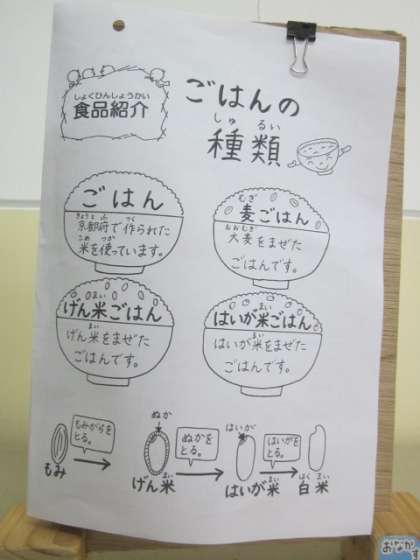 しょくひんしょうかい
食品紹介
ごはんの
しゅ るい
種類
ごはん
きょうとふ つく
京都府で作られた
こめ つか
米を使っています。
むぎ
麦ごはん
おおむぎ
大麦をまぜた
ごはんです。
まい
げん米ごはん
まい
げん米をまぜた
ごはんです。
まい
はいが米ごはん
まい
はいが米をまぜた
ごはんです。
もみ
もみがらを
とる。
ぬか
げん米
まい
ぬかを
とる。
はいが
はいが米
まい
はいがを
とる。
はく まい
白米
おなかす